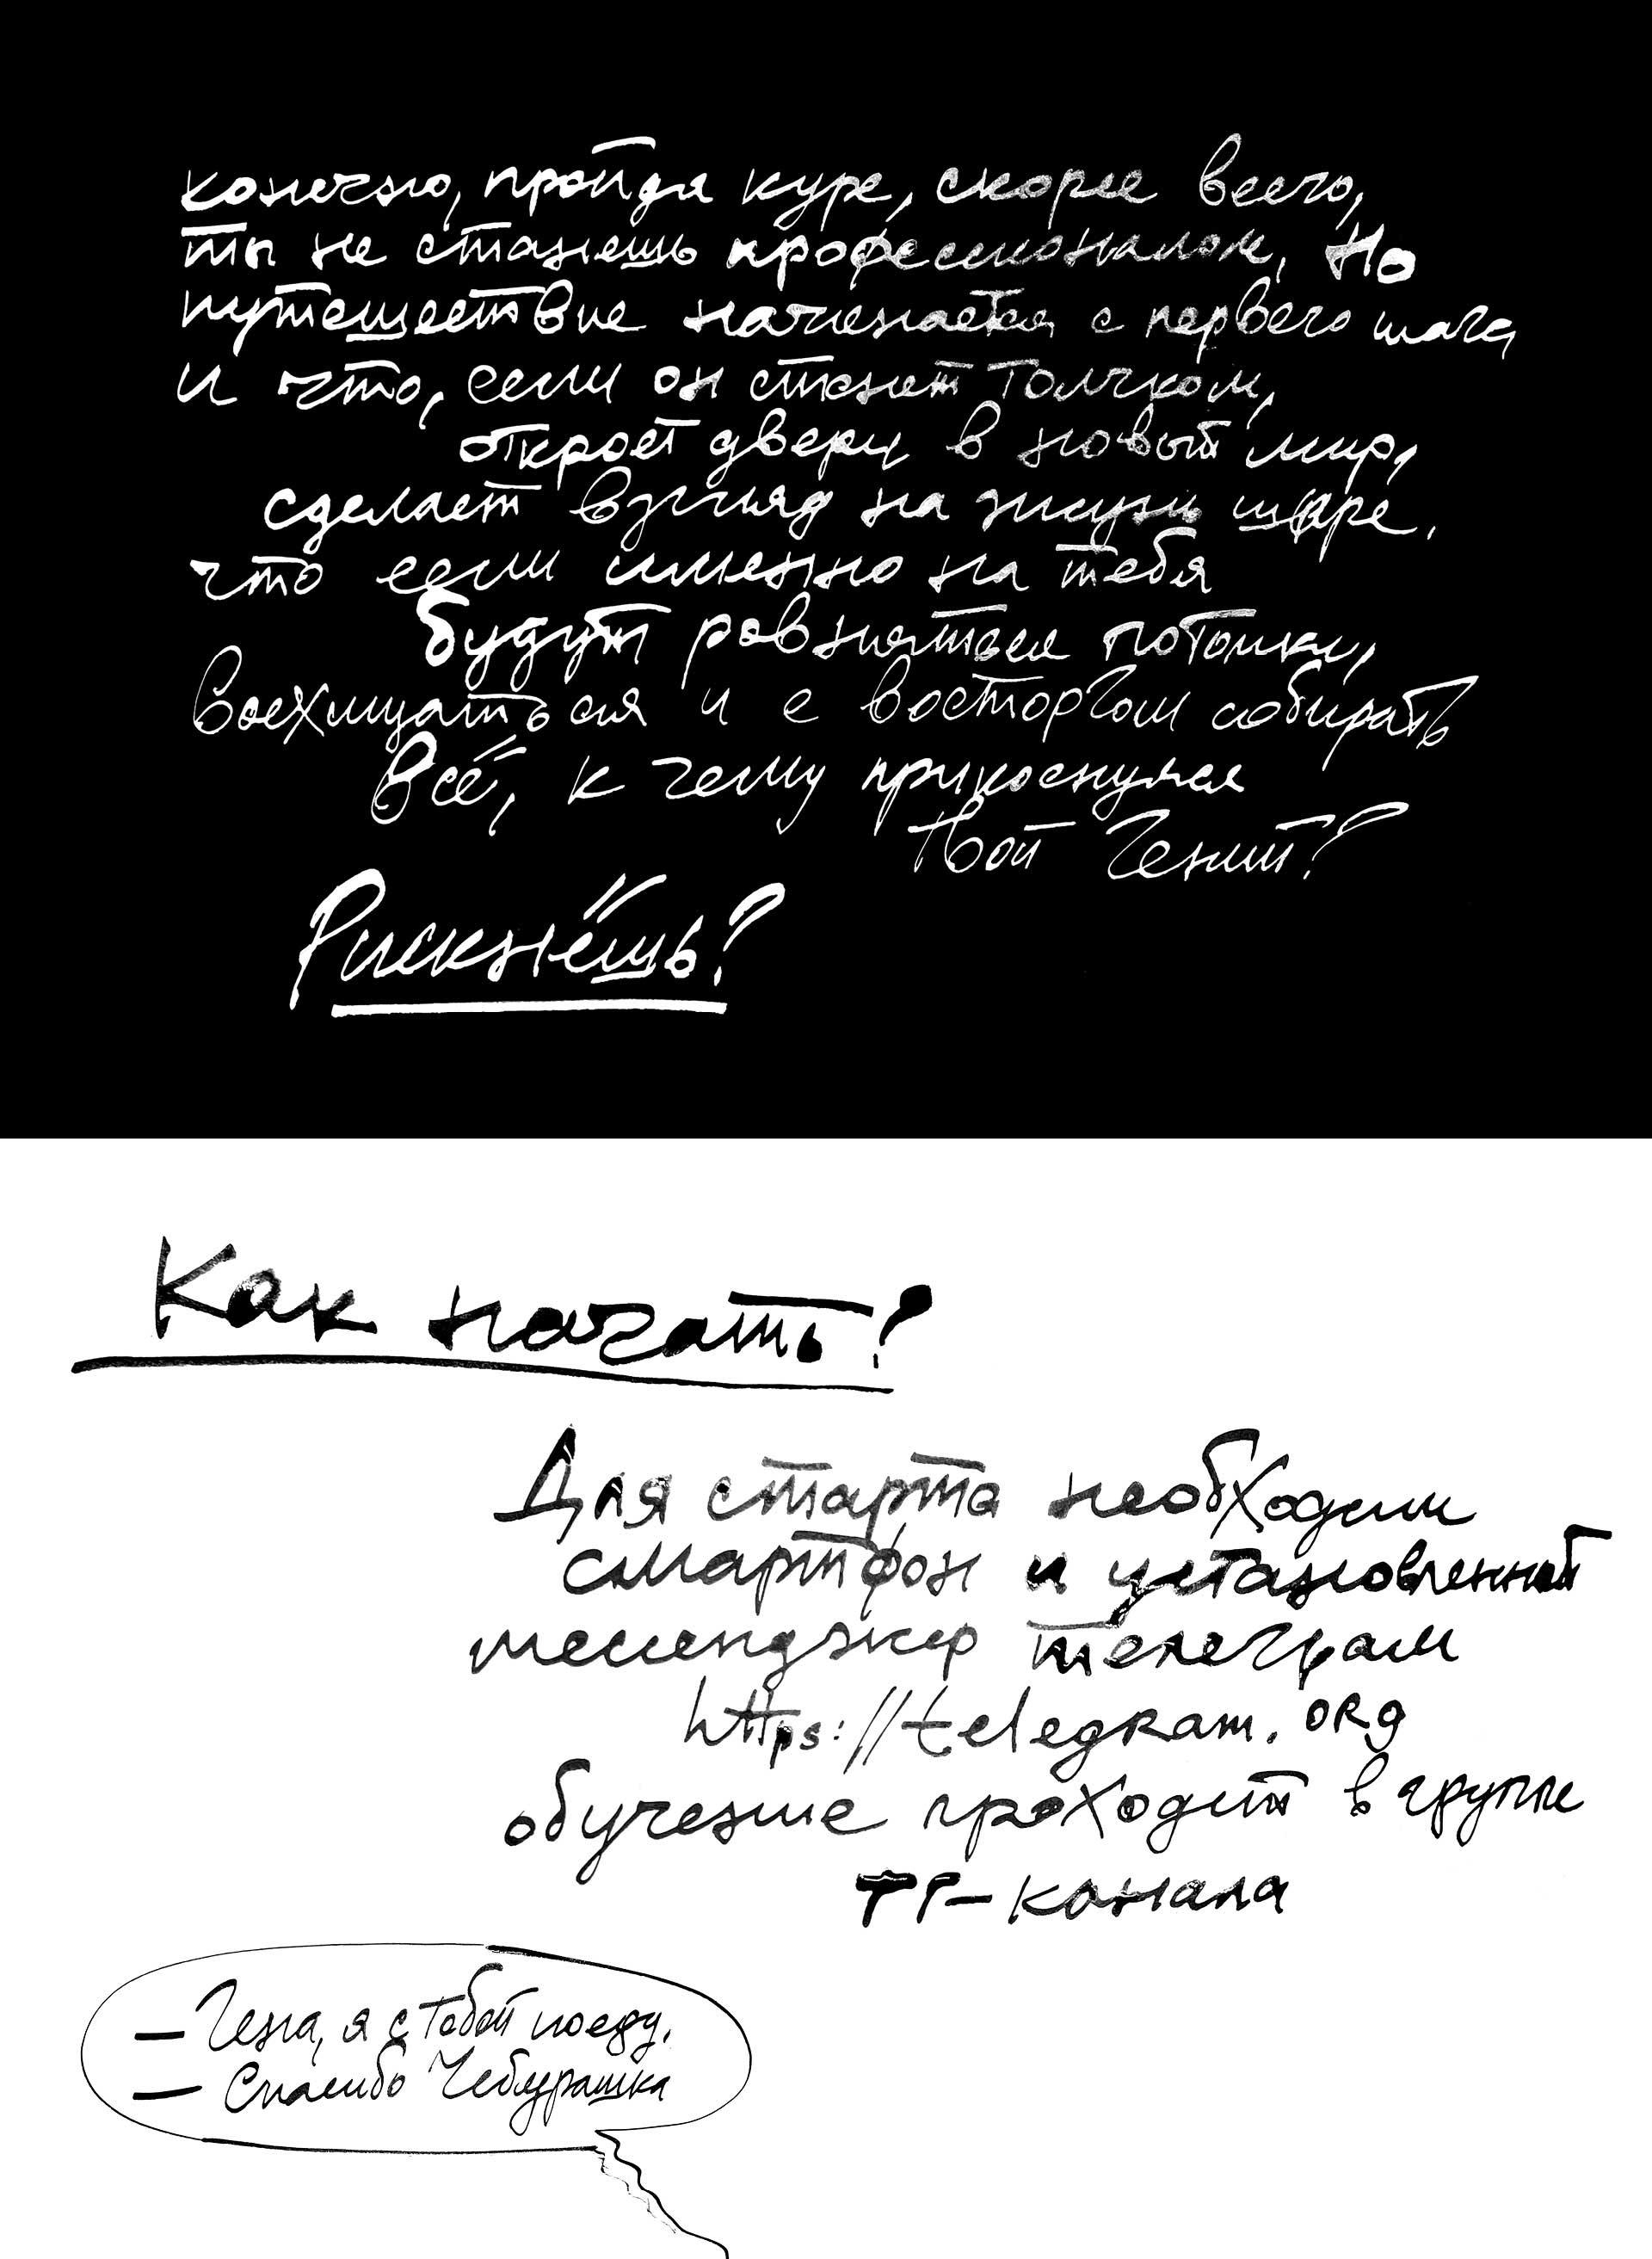 конечно, пройдя курс, скорее всего,
ты не станешь профессионалом, Но
путешествие начинается с первого шага
и что, если он станет толчком,
откроет двери в новый мир,
сделает взгляд на жизнь шире.
что если именно на тебя
будут ровняться потомки,
восхищаться и с восторгом собирать
Всё, к чему прикоснулся
Твой Гений?
Рискнёшь?
Как начать?
Для старта необходим
смартфон и установленный
мессенджер телеграм
https://telegram.org
обучение проходит в группе
ТГ-канала
– Гена, я с тобой поеду.
– Спасибо Чебурашка